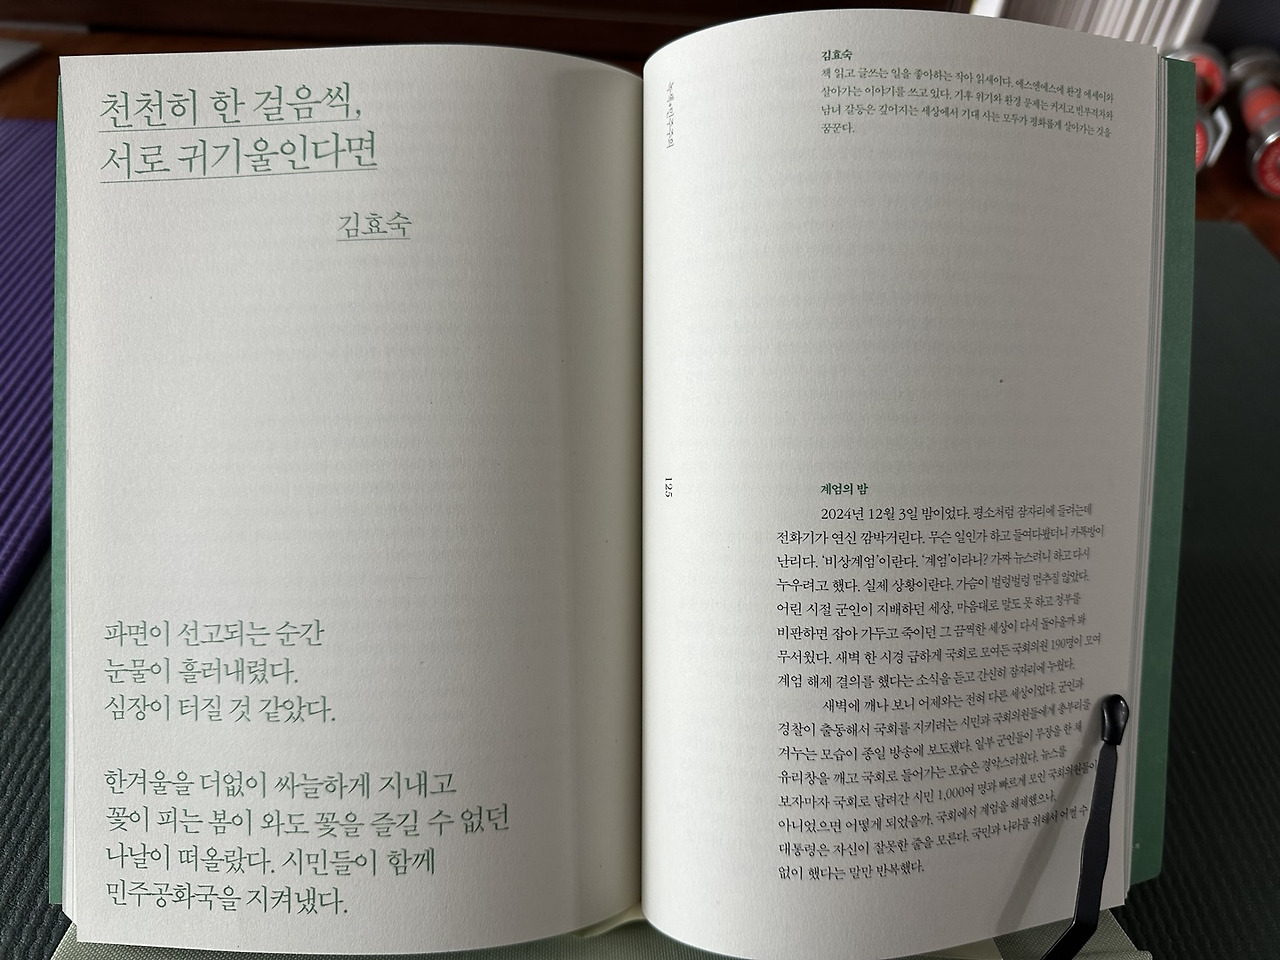 천천히 한 걸음씩,
서로 귀기울인다면
김효숙
파면이 선고되는 순간
눈물이 흘러내렸다.
심장이 터질 것 같았다.
한겨울을 더없이 싸늘하게 지내고
꽃이 피는 봄이 와도 꽃을 즐길 수 없던
나날이 떠올랐다. 시민들이 함께
민주공화국을 지켜냈다.
김효숙
책 읽고 글쓰는 일을 좋아하는 작아 읽새이다. 에스엔에스에 환경 에세이와
살아가는 이야기를 쓰고 있다. 기후 위기와 환경 문제는 커지고 빈부격차와
남녀 갈등은 깊어지는 세상에서 기대 사는 모두가 평화롭게 살아가는 것을
꿈꾼다.
녹색+민주주의
125
계엄의 밤
2024년 12월 3일 밤이었다. 평소처럼 잠자리에 들려는데
전화기가 연신 깜박거린다. 무슨 일인가 하고 들여다봤더니 카톡방이
난리다. ‘비상계엄’이란다. ‘계엄’이라니? 가짜 뉴스려니 하고 다시
누우려고 했다. 실제 상황이란다. 가슴이 벌렁벌렁 멈추질 않았다.
어린 시절 군인이 지배하던 세상, 마음대로 말도 못 하고 정부를
비판하면 잡아 가두고 죽이던 그 끔찍한 세상이 다시 돌아올까 봐
무서웠다. 새벽 한 시경 급하게 국회로 모여든 국회의원 190명이 모여
계엄 해제 결의를 했다는 소식을 듣고 간신히 잠자리에 누웠다.
새벽에 깨나 보니 어제와는 전혀 다른 세상이었다. 군인과
경찰이 출동해서 국회를 지키려는 시민과 국회의원들에게 총부리를
겨누는 모습이 종일 방송에 보도됐다. 일부 군인들이 무장을 한 채
유리창을 깨고 국회로 들어가는 모습은 경악스러웠다. 뉴스를
보자마자 국회로 달려간 시민 1,000여 명과 빠르게 모인 국회의원들이
아니었으면 어떻게 되었을까. 국회에서 계엄을 해제했으나,
대통령은 자신이 잘못한 줄을 모른다. 국민과 나라를 위해서 어쩔 수
없이 했다는 말만 반복했다.